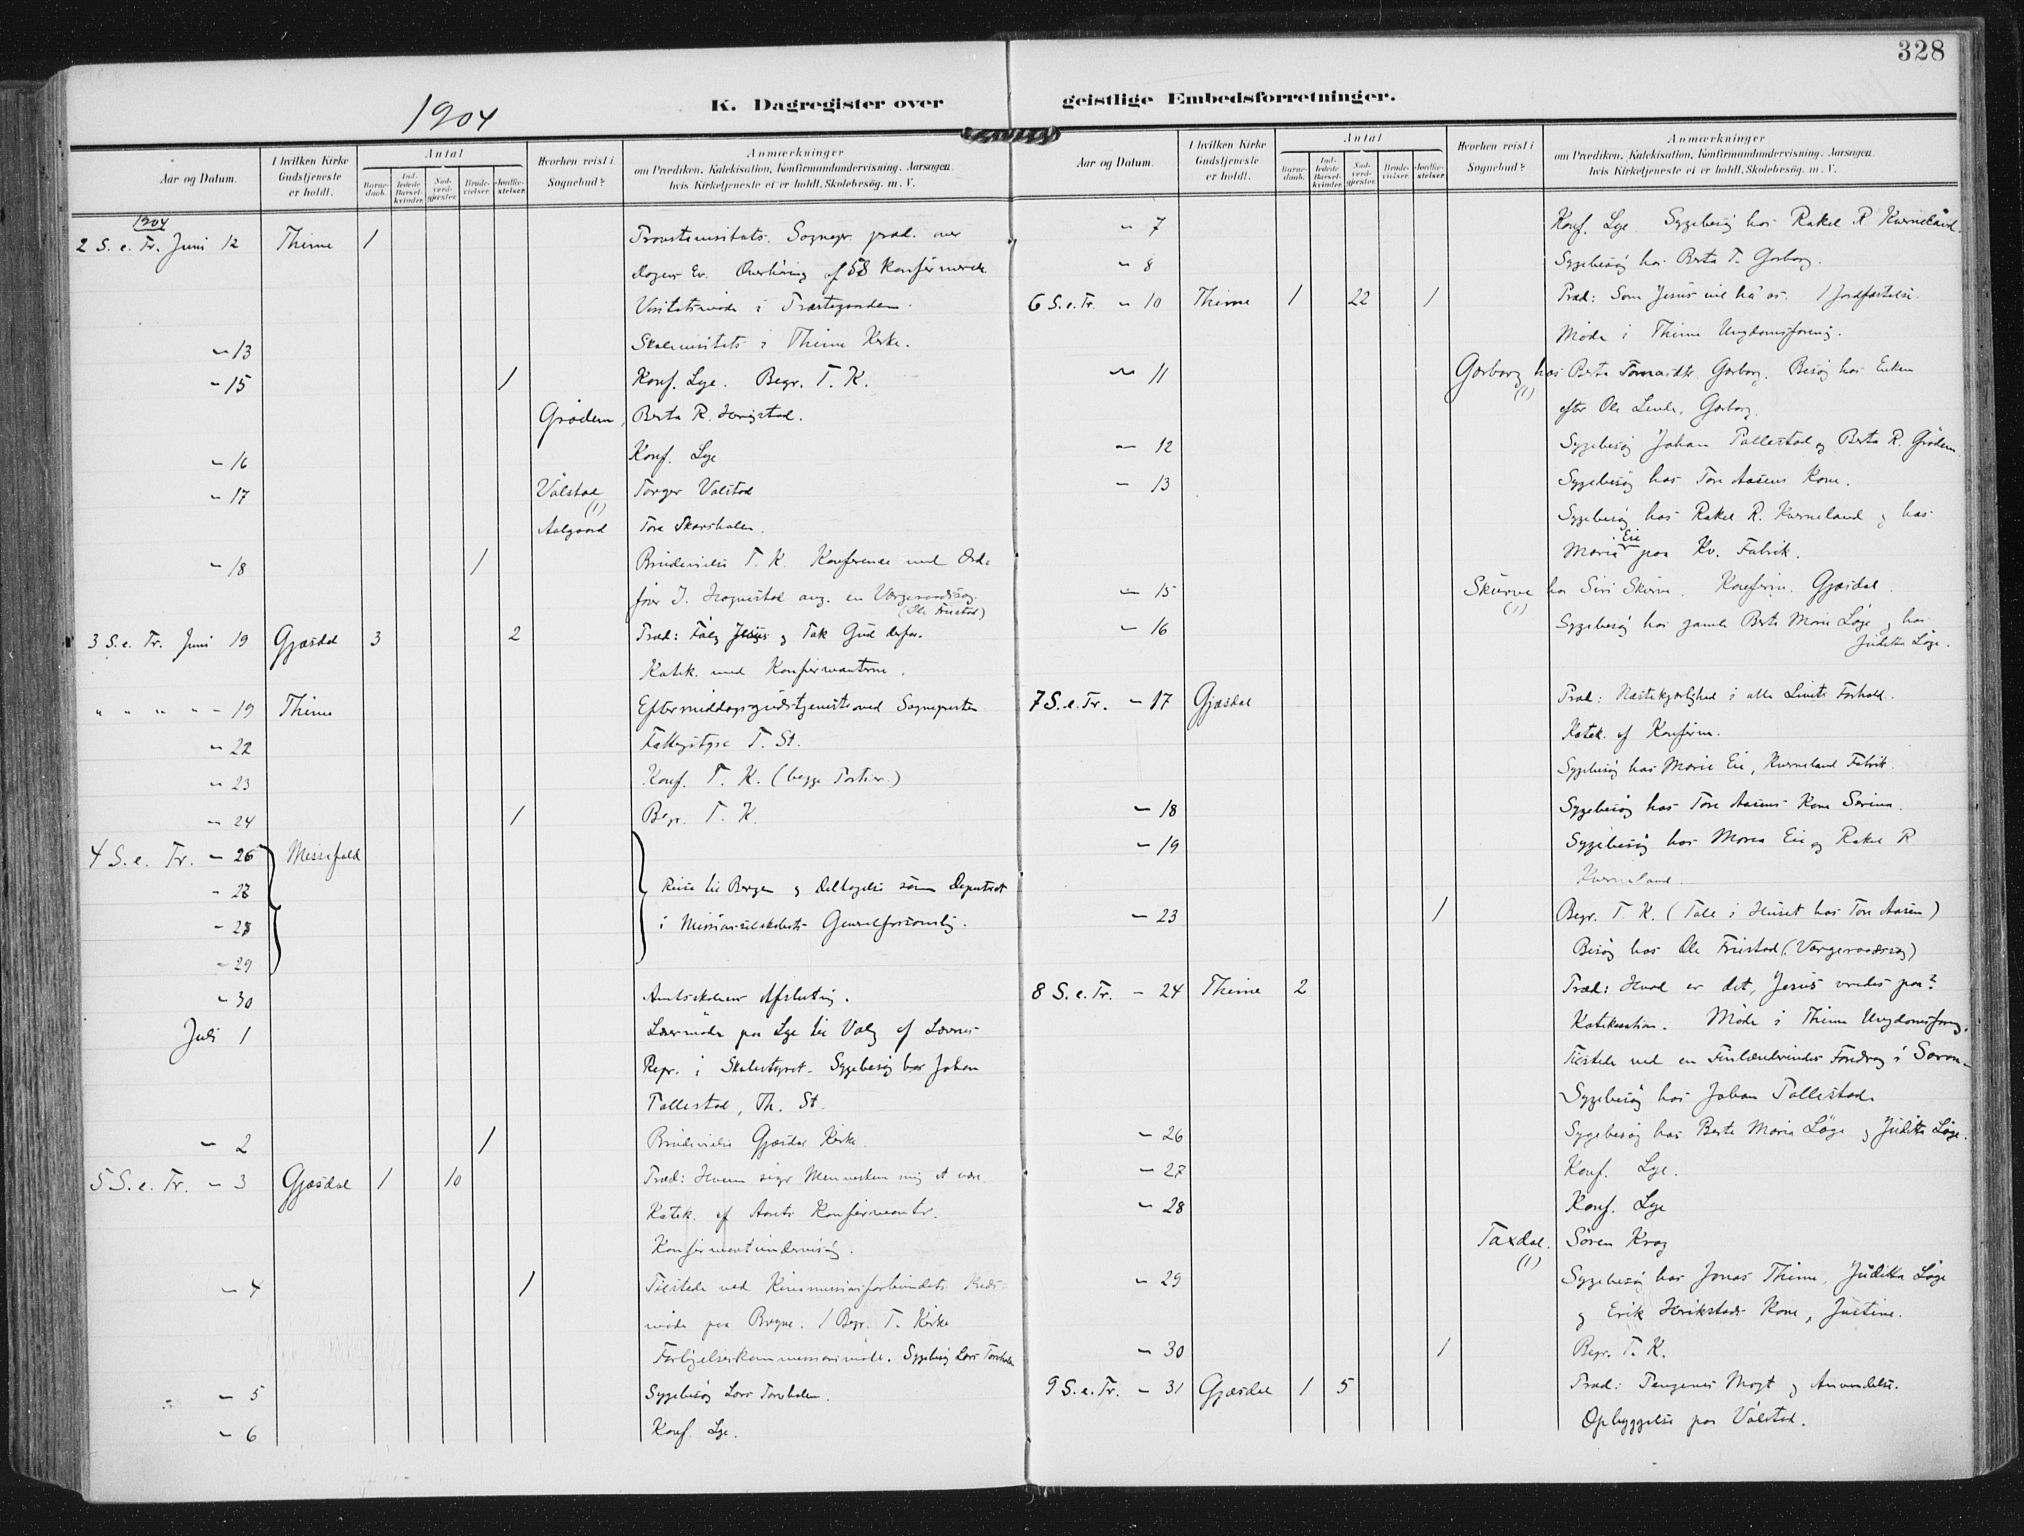 328
1904
K. Dagregister over
geistlige Embedsforretninger.
Aar og Datum.
I hvilken Kirke Gudstjeneste er holdt.
Antal
Barnedaab.
Indledede Barselkvinder.
Nadverdgjester.
Brudevielser.
Jordfæstelser.
Hvorhen reist i Sognebud?
Anmærkninger
om Prædiken, Katekisation, Konfirmandundervisning, Aarsagen,
hvis Kirketjeneste ei er holdt, Skolebesøg, m. V.
1904
2 S. e. Tr. Juni 12 Thime 1 Provstevisitats. Sognepr. præd. over
dagens Ev. Overhöring af 58 Konfirmerede
Visitatsmöde i Præstegaarden.
" 13 Skolevisitats i Thime Kirke.
" 15 1 Konf. Lye. Begr. T. K.
Grödem, Berta R. Hognstad.
" 16 Konf. Lye
" 17 Vålstad (1) Torger Valstad
Aalgaard Tore Skarshalen.
" 18 1 Brudevielse T. K. Konferense med Ord-
förer J. Hognestad ang. en Vergeraadssag.
(Ole Fristad)
3 S. e. Tr. Juni 19 Gjæsdal 3 2 Præd: Fölg Jesus og Tak Gud derfor.
Katek. med Konfirmanterne.
" " " " - 19 Thime Eftermiddagsgudstjeneste ved Sognepresten
" 22 Fattigstyre T. St.
" 23 Konf. T. K. (begge Partier.)
" 24 1 Begr. T. K.
4 S. e. Tr. - 26 Messefald
- 27 Reise til Bergen og Deltagelse som Deputeret
- 28 i Missionsselskabets Generalforsamling.
- 29
- 30 Amtsskolens Afslutning.
Juli 1 Lærermöde paa Lye til Valg af Lærernes
Repr. i Skolestyret. Sygebesög hos Johan
Tallestad, Th. St.
- 2 1 Brudevielse Gjæsdal Kirke.
5 S. e. Tr. - 3 Gjæsdal 1 10 Præd: Hvem siger Menneskene mig at være
Katek. af Aarets Konfirmanter.
Konfirmantundervisning.
- 4 1 Tilstede ved Kinamissionsforbundets Kreds-
möde paa Bryne. 1 Begr. T. Kirke
Forligelseskommissionsmöde. Sygebesög Lars Torshalen
- 5 Sygebesög Lars Torshalen.
- 6 Konf. Lye.
Aar og Datum.
I hvilken Kirke Gudstjeneste er holdt.
Antal
Barnedaab.
Indledede Barselkvinder.
Nadverdgjester.
Brudevielser.
Jordfæstelser.
Hvorhen reist i Sognebud?
Anmærkninger
om Prædiken, Katekisation, Konfirmandundervisning, Aarsagen,
hvis Kirketjeneste ei er holdt, Skolebesøg, m. V.
" 7 Konf. Lye Sygebesög hos Rakel R Kverneland.
" 8 Sygebesög hos Berta T. Garborg.
6 S. e. Tr. " 10 Thime 1 22 1 Præd: Som Jesus vil ha' os. 1 Jordfæstelse.
Möde i Thime Ungdomsforening.
" 11 Garborg (1) hos Berta Tomasdtr. Garborg. Besög hos Enken
efter Ole Lende, Garborg.
- 12 Sygebesög Johan Tallestad og Berta R. Grödem.
- 13 Sygebesög hos Tore Aasens Kone.
Sygebesög hos Rakel R. Kverneland og hos
Maria Eie paa Kv. Fabrik.
- 15 Skurve (1) hos Siri Skurve. Konfirm. Gjæsdal.
- 16 Sygebesög hos gamle Berte Marie Löge og hos
Juditta Löge.
7 S. e. Tr. - 17 Gjæsdal Præd: Næstekjærlighed i alle Livets Forhold.
Katek. af Konfirm.
Sygebesög hos Marie Eie, Kverneland Fabrik.
- 18 Sygebesög hos Tore Aasens Kone Serina.
- 19 Sygebesög hos Maria Eie og Rakel R
Kverneland.
- 23 1 Begr. T. K. (Tale i Huset hos Tore Aasen)
Besög hos Ole Fristad (Vergeraadssag)
8 S. e. Tr. - 24 Thime 2 Præd: Hvad er det, Jesus vredes paa?
Katekisation. Möde i Thime Ungdomsforening.
Tilstede ved en Finlænderindes Foredrag i Saron-
Sygebesög hos Johan Tallestad.
- 26 Sygebesög hos Berte Maria Löge og Juditta Löge.
- 27 Konf. Lye.
- 28 Konf. Lye
Taxdal. (1) Sören Krag
- 29 Sygebesög hos Jonas Thime, Juditta Löge
og Erik Herikstads Kone, Justine.
- 30 1 Begr. T. K.
9 S. e. Tr. - 31 Gjæsdal 1 5 Præd: Pengenes Magt og Anvendelse.
Opbyggelse paa Vålstad.